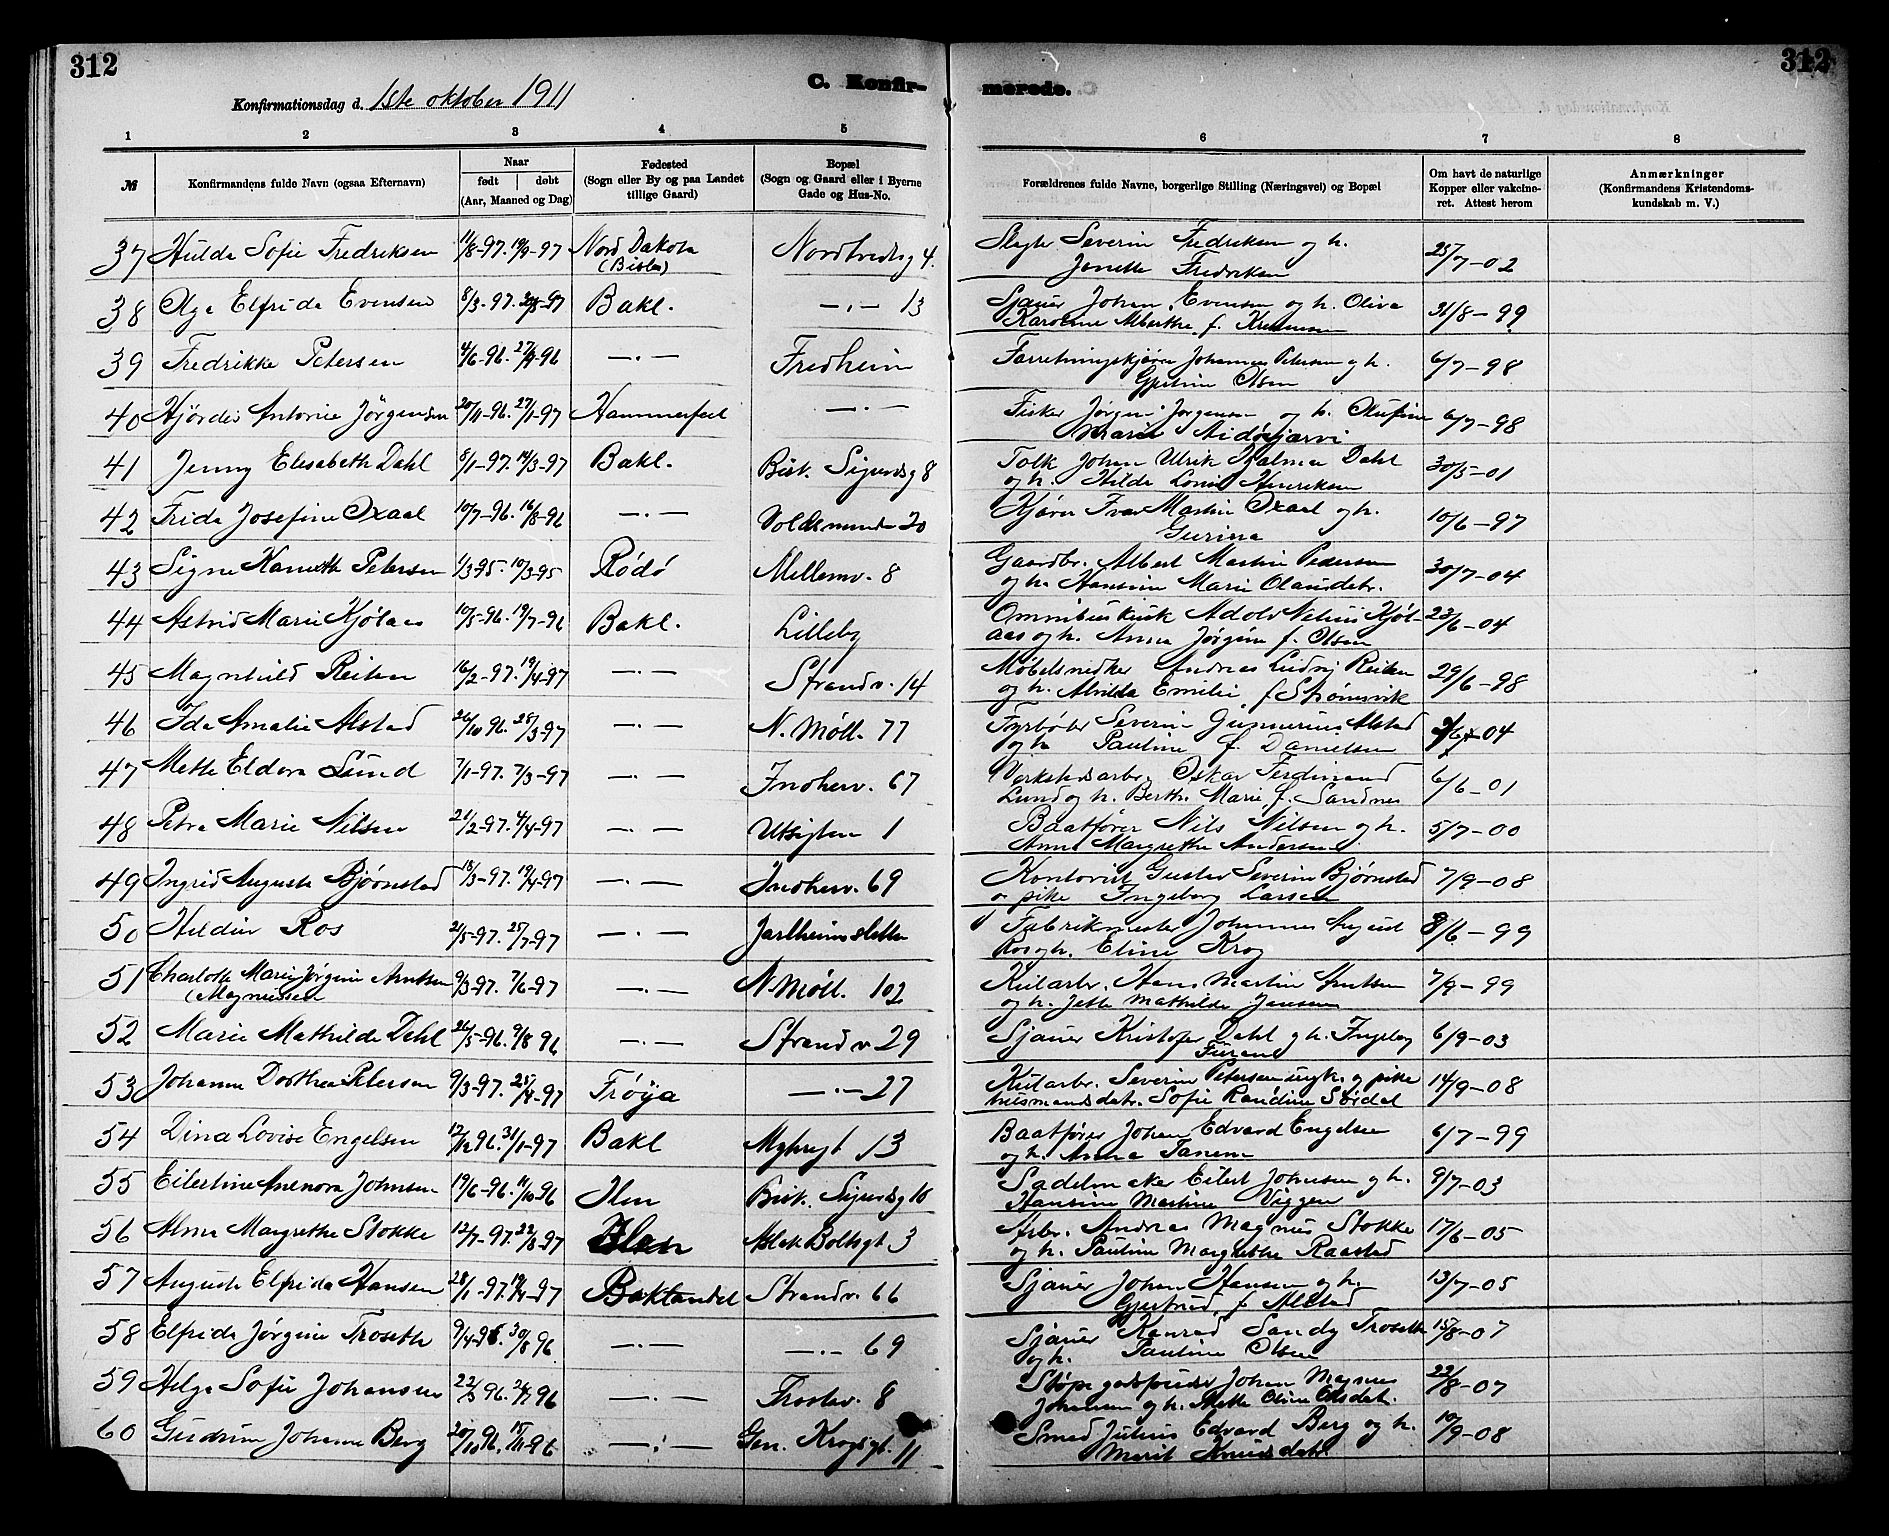 312
312
Konfirmationsdag d. 1ste oktober 1911
C. Konfir-
merede.
1 2 3 4 5 6 7 8
№ Konfirmandens fulde Navn (ogsaa Efternavn) Naar født døbt (Aar, Maaned og Dag) Fødested (Sogn eller By og paa Landet tillige Gaard) Bopæl (Sogn og Gaard eller i Byerne Gade og Hus-No. Forældrenes fulde Navne, borgerlige Stilling (Næringsvei) og Bopæl Om havt de naturlige Kopper eller vakcineret. Attest herom Anmærkninger (Konfirmandens Kristendomskundskab m. V.)
37 Hulda Sofie Fredriksen 11/8-97. 19/9-97 Nord Dakota Nordtvedtsg 4. Severin Fredriksen og h. Jonette Fredriksen 25/7-02
38 Olga Elfrida Evensen 8/3-97. Bakl. —.— 13 Sjauer Johan Evensen og h. Oliva Karoline Albertine f. 31/8-99
39 Fredrikke Petersen 4/6-96. —.— Fredheim Johannes Petersen og h. Olsen 6/7-98
40 Hjördis Antonie Jörgensen 20/11-96. 27/1-97 Hammerfest —.— Fisker Jørgen Jørgensen og h. Olufine Marie 6/7-98
41 Jenny Elisabeth Dahl 8/1-97. 14/3-97 Bakl. Bisk. Sigurdsg 8 Tolk Johan Ulrik Hjalmar Dahl og h. Hilda Henriksen 30/5-01
42 Frida Josefine Oxaal 10/7-96. 16/8-96 —.— Voldsminde 20 Kjører Ivar Martin Oxaal og h. Gurina 10/6-97
43 Signe Petersen 1/3-95. 10/3-95 Rödö Mellemv. 8 Gaardbr. Albert Martin Pedersen og h. Hansine Marie Olausdatr. 30/7-04
44 Astrid Marie Kjölaas 10/5-96. 19/7-96 Bakl. Lilleby Omnibuskusk Adolv Nelius Kjölaas og h. Anna Jörgine f. Olsen 23/6-04
45 Magnhild Reiten 16/2-97. 19/4-97 —.— Strandv. 14 Møbelsnedker Andreas Ludvig Reiten og h. Alvilda Emilie f. Strømsvik 29/6-98
46 Ida Amalie Alstad 26/10 96. 28/3-97 —.— N. Møll. 77 Fyrbøder Severin Gunnerius Alstad og h. Pauline f. Danielsen 04
47 Mette Eldora Lund 7/1-97. 7/3-97 —.— Indherv. 67 Verkstedsarbr. Oskar Ferdinand Lund og h. Berth. Marie f. Sandnes 6/6-01
48 Petra Marie Nilsen 21/2-97. 4/4-97 —.— Utsigten 1 Baatfører Nils Nilsen og h. Anna Margrethe Andersen 5/7-00
49 Ingrid Augusta Bjørnstad 18/3-97. 19/4-97 —.— Indherv. 69 Kontorist Gustav Severin Bjørnstad o. pike Ingeborg Larsen 7/9-08
50 Hildur Ros 21/5-97. 25/7-97 —.— Jarlheimsletten Fabrikmester Johannes August Ros og h. Eline Krog 8/6-99
51 Charlotte Marie Jørgine Arntsen (Magnussen 9/3-97. 7/6-97 —.— N. Møll. 102 Kularbr. Hans Martin Arntsen og h. Jette Mathilde Jensen 7/9-99
52 Marie Mathilde Dahl 26/5-96. 9/8 96 —.— Strandv 29 Sjauer Kristofer Dahl og h. Ingeborg Furand 6/9-03
53 Johanne Dorthea Petersen 9/3-97. 25/4-97 Fröya —.— 27 Kularbr. Severin Petersen ungk. og pike husmandsdatr. Sofie Randine Sördal 14/9-08
54 Dina Lovise Engelsen 12/12 96. 31/1-97 Bakl Myhregt 13 Baatfører Johan Edvard Engelsen og h. Anna Tanem 6/7-99
55 Eilertine Anenora Johnsen 19/6-96. 11/10-96 Ilen Bisk. Sigurdsg 10 Sadelmaker Eilert Johnsen og h. Hansine Martine Viggen 9/7-03
56 Alma Margrethe Stokke 12/7-97. 22/8-97 Ilen Aslak Boltsgt 3 Arbr. Andreas Magnus Stokke og h. Pauline Margrethe Raastad 17/6-05
57 Augusta Elfrida Hansen 28/1-97. 19/4-97 Baklandet Strandv. 66 Sjauer Johan Hansen og h. Gjertrud f. Alstad 13/7-05
58 Elfrida Jørgine Troseth 9/4-96. 30/8 96 —.— —.— 69 Sjauer Konrad Sandy Troseth og h. Pauline Olsen 15/8-07
59 Helga Sofie Johansen —.— Frostav. 8 Johan Magnus Johansen og h. Mette Oline Olsdatr. 22/8-07
60 Gudrun Johanne Berg 20/10 96. 15/11-96 —.— Gen. Krogsgt. 11 Smed Julius Edvard Berg og h. Marit Knudsdatr. 10/9-08